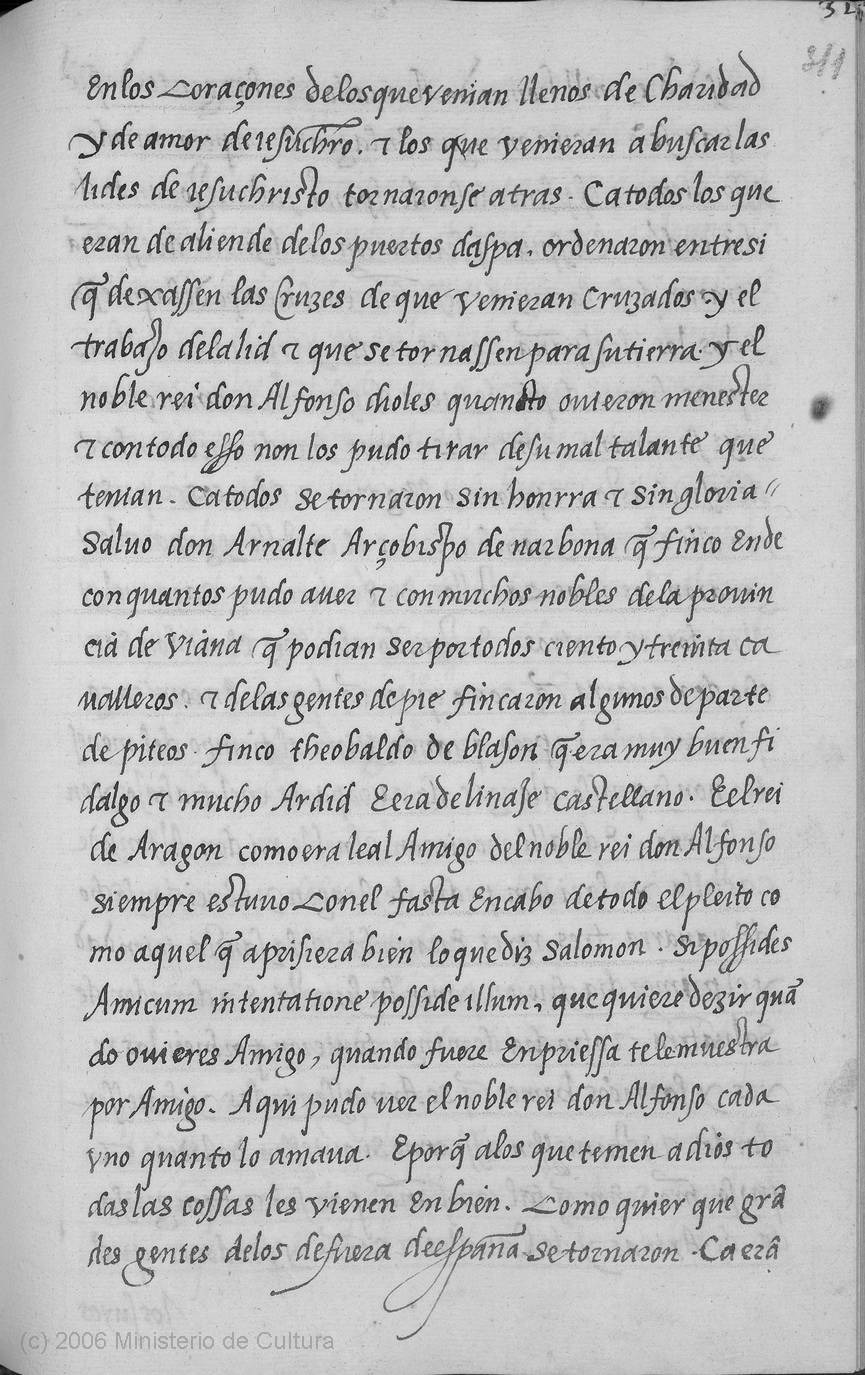 32
311
Enlos Coraçones delosquevenian llenos de Charidad
y de amor de iesuchr̃o. τ los que venieran abuscarlas
lides de iesuchristo tornaronse atras. Catodos los que
eran de aliende delos puertos daspa, ordenaron entresi
q̃ dexassen las Cruzes de que venieran Cruzados y el
trabajo delalid τ que se tornassen para sutierra. y el
noble rei don Alfonso dioles quanto ovieron menester
τ contodo esso non los pudo tirar desu mal talante que
tenian. Catodos se tornaron sin honrra τ sin gloria
Salvo don Arnalte Arçobispo de narbona q̃ finco Ende
con quantos pudo aver τ con muchos nobles dela provin
cia de Viana q̃ podian ser por todos ciento y treinta ca
valleros. τ delas gentes de pie fincaron algunos de parte
de piteos. finco theobaldo de blason q̃ era muy buen fi
dalgo τ mucho Ardid E era de linaje castellano. E el rei
de Aragon como era leal Amigo del noble rei don Alfonso
siempre estuvo Conel fasta Encabo de todo el pleito co
mo aquel q̃ aprisiera bien lo que diz Salomon. Si possides
Amicum in tentatione posside illum, que quiere dezir quã
do ovieres Amigo, quando fuere Enpriessa te lemuestra
por Amigo. Aqui pudo ver el noble rei don Alfonso cada
vno quanto lo amava. E porq̃ alos que temen a dios to
das las cossas les vienen En bien. Como quier que grã
des gentes delos defuera de españa se tornaron. Ca erã
(c) 2006 Ministerio de Cultura